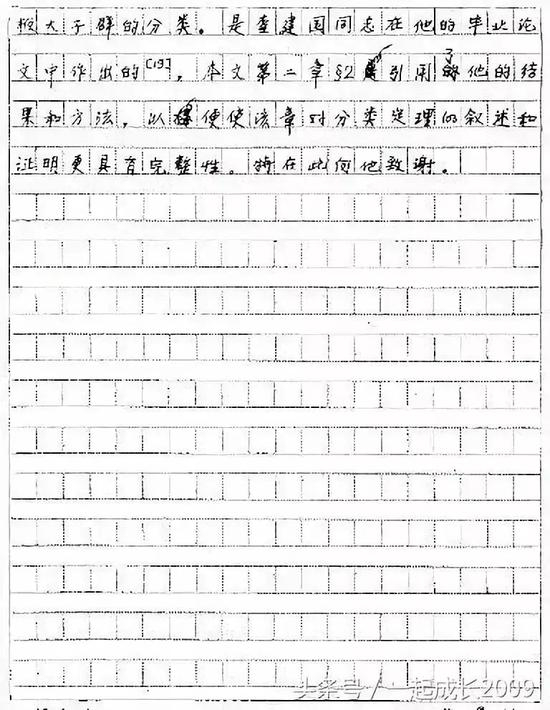 极大子群的分类。是查建国同志在他的毕业论
文中作出的[19]，本文第二章§2引用了他的结
果和方法，以便使该章对分类定理的叙述和
证明更具有完整性。特在此向他致谢。
头条号 / 一起成长2009